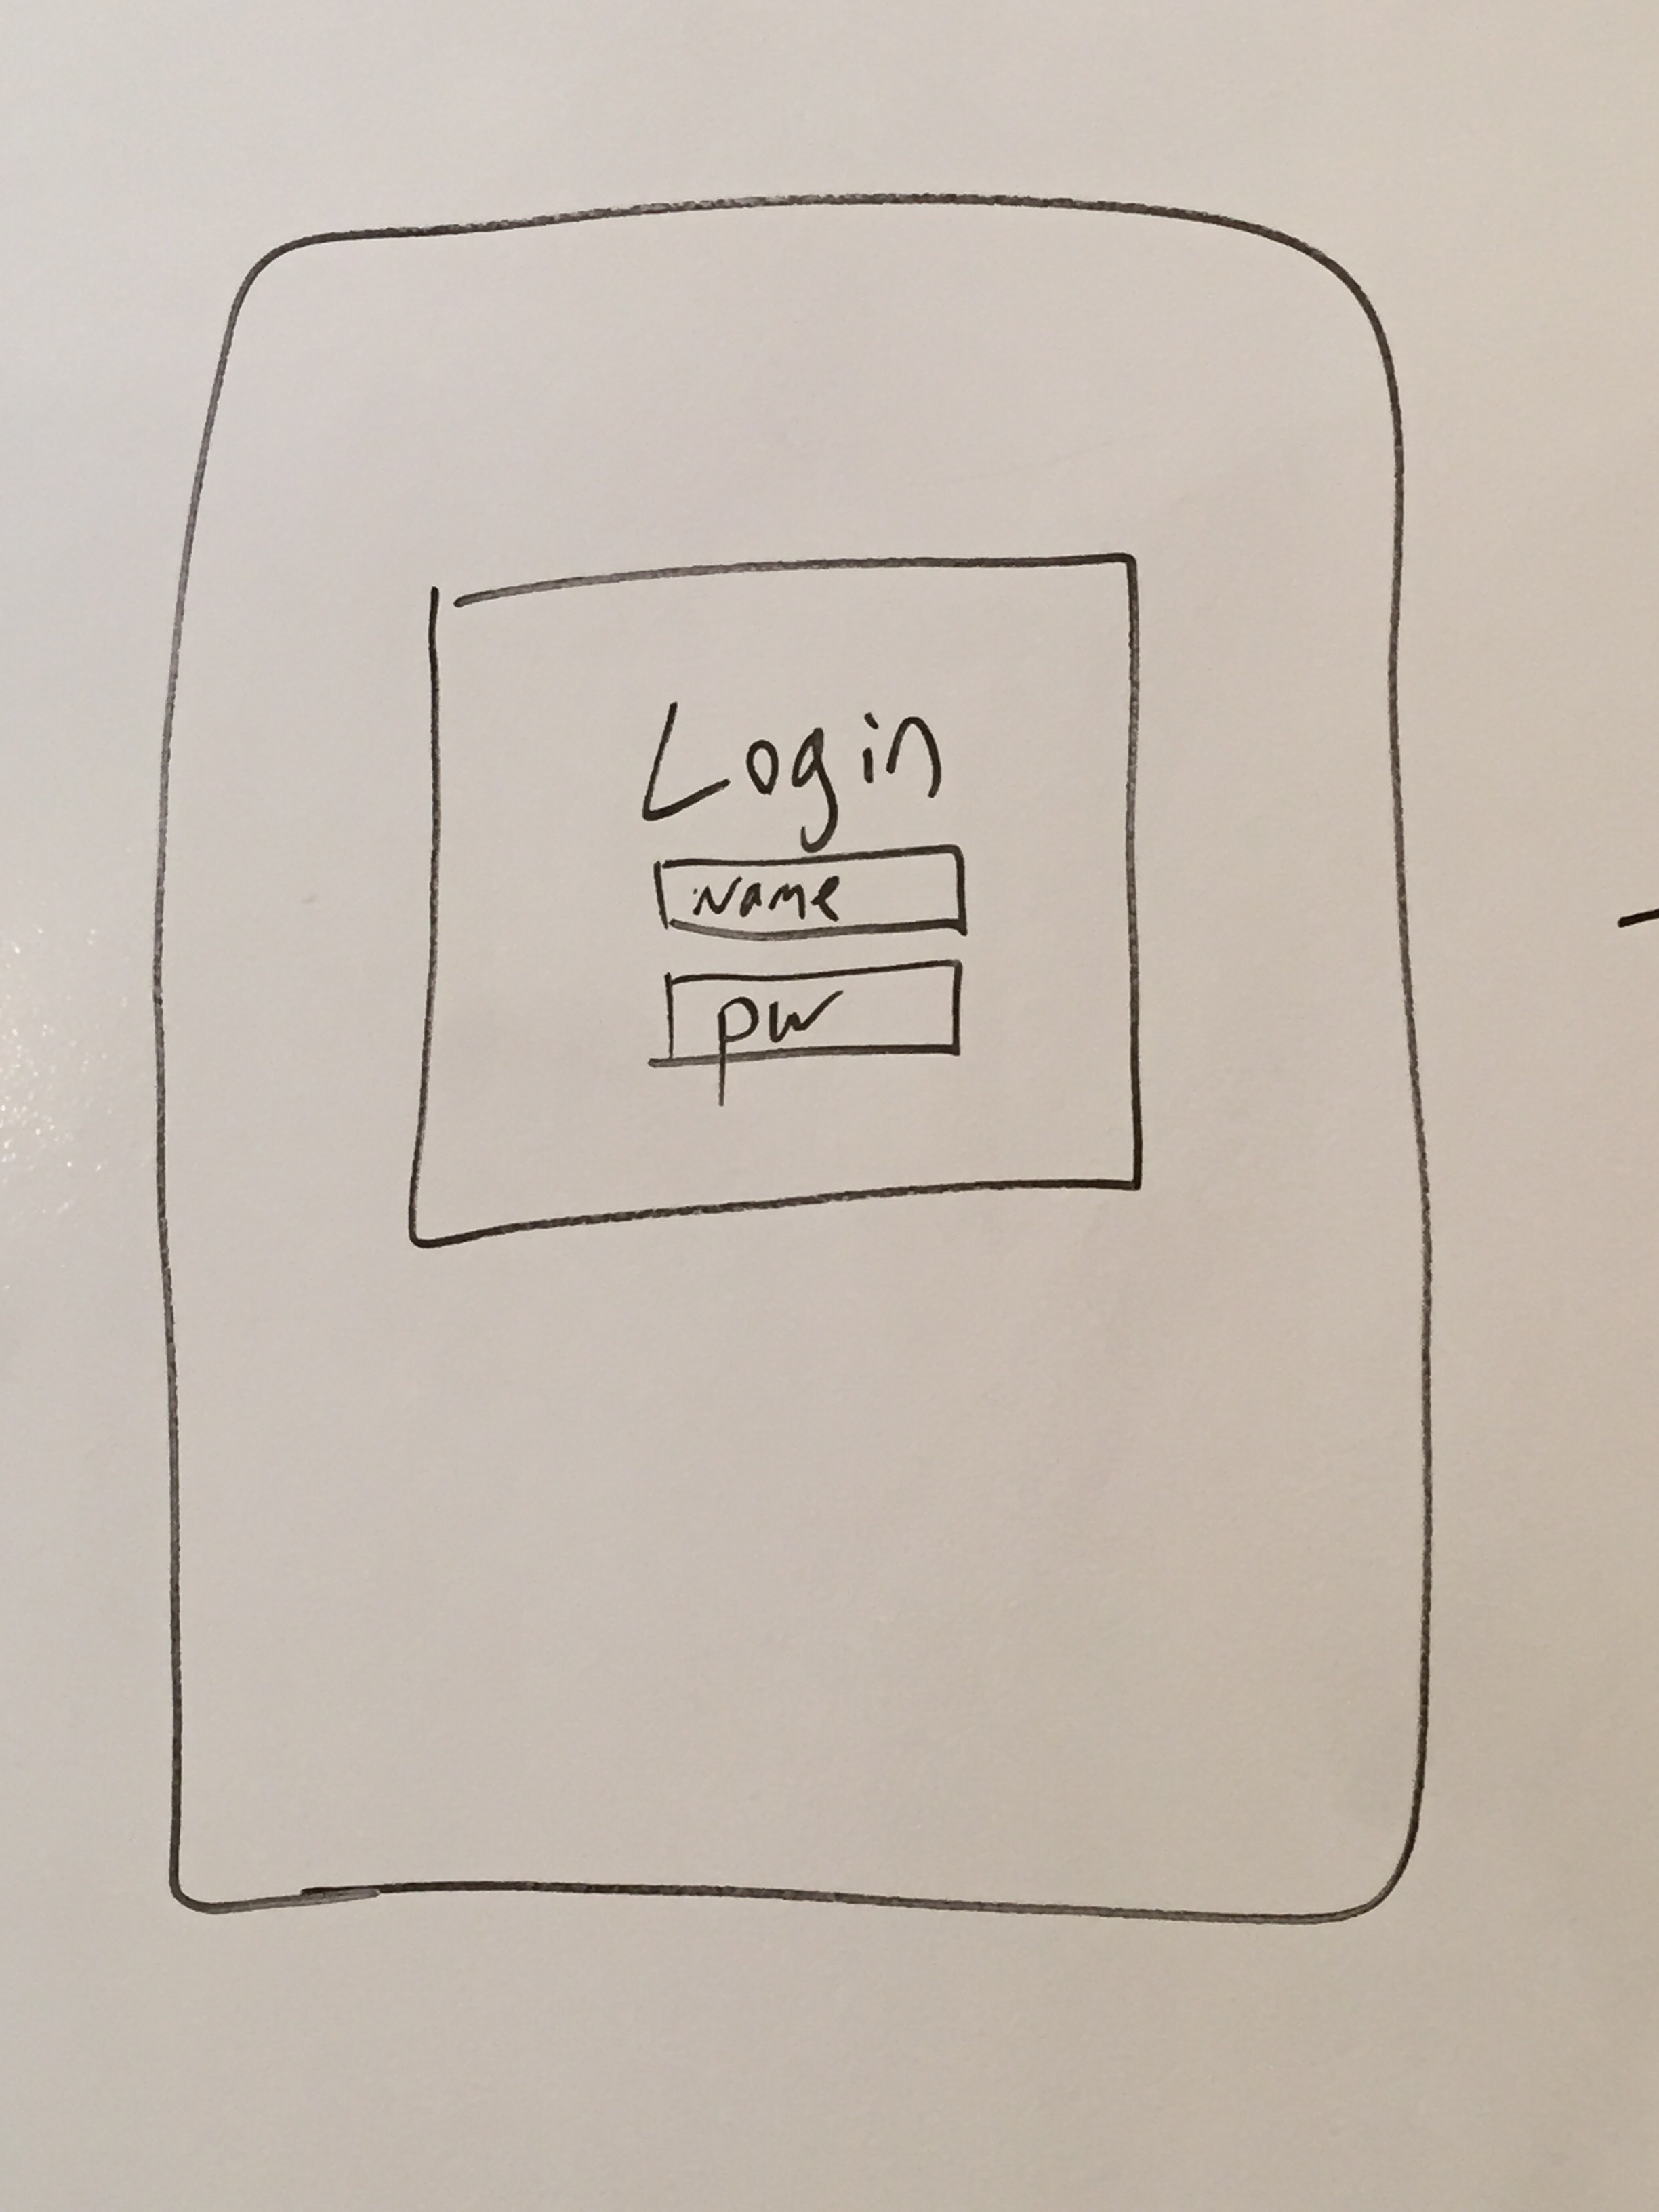 Login
Name
pw